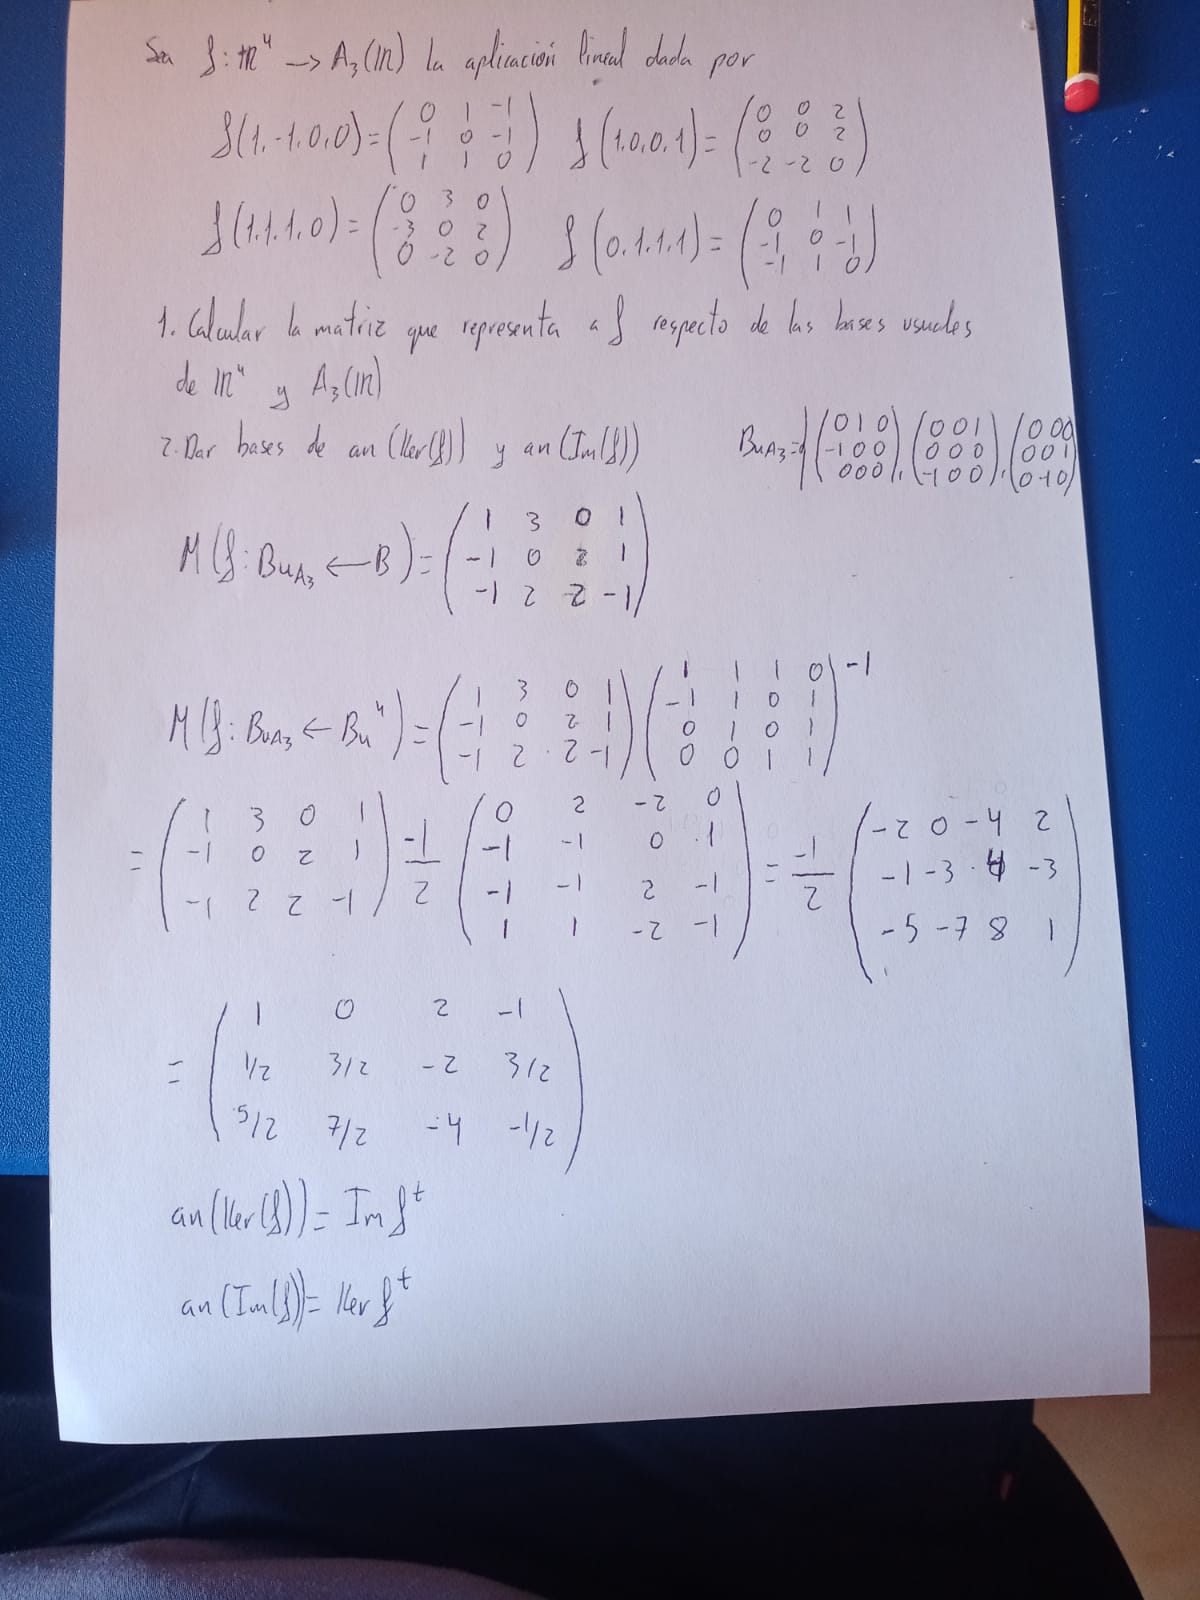 Sea f: ℝ⁴ → A₃(ℝ) la aplicación lineal dada por
f(1,-1,0,0) = (0 1 -1; -1 0 -1; 1 1 0) f(1,0,0,1) = (0 0 2; 0 0 2; -2 -2 0)
f(1,1,1,0) = (0 3 0; -3 0 2; 0 -2 0) f(0,1,1,1) = (0 1 1; -1 0 -1; -1 1 0)
1. Calcular la matriz que representa a f respecto de las bases usuales
de ℝ⁴ y A₃(ℝ)
2. Dar bases de an(Ker(f)) y an(Im(f))
BuA₃ = {(0 1 0; -1 0 0; 0 0 0), (0 0 1; 0 0 0; -1 0 0), (0 0 0; 0 0 1; 0 -1 0)
M(f: BuA₃ ← B) = (1 3 0 1; -1 0 2 1; -1 2 2 -1)
M(f: BuA₃ ← Bu⁴) = (1 3 0 1; -1 0 2 1; -1 2 2 -1) (1 1 1 0; -1 1 0 1; 0 1 0 1; 0 0 1 1)⁻¹
= (1 3 0 1; -1 0 2 1; -1 2 2 -1) -1/2 (0 2 -2 0; -1 -1 0 1; -1 -1 2 -1; 1 1 -2 -1) = -1/2 (-2 0 -4 2; -1 -3 4 -3; -5 -7 8 1)
= (1 0 2 -1; 1/2 3/2 -2 3/2; 5/2 7/2 -4 -1/2)
an(Ker(f)) = Im fᵗ
an(Im(f)) = Ker fᵗ